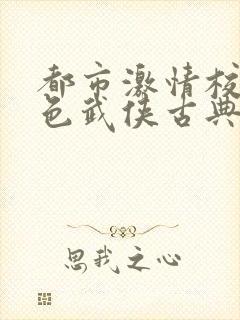 都市激情校
色武侠古典
思我之心